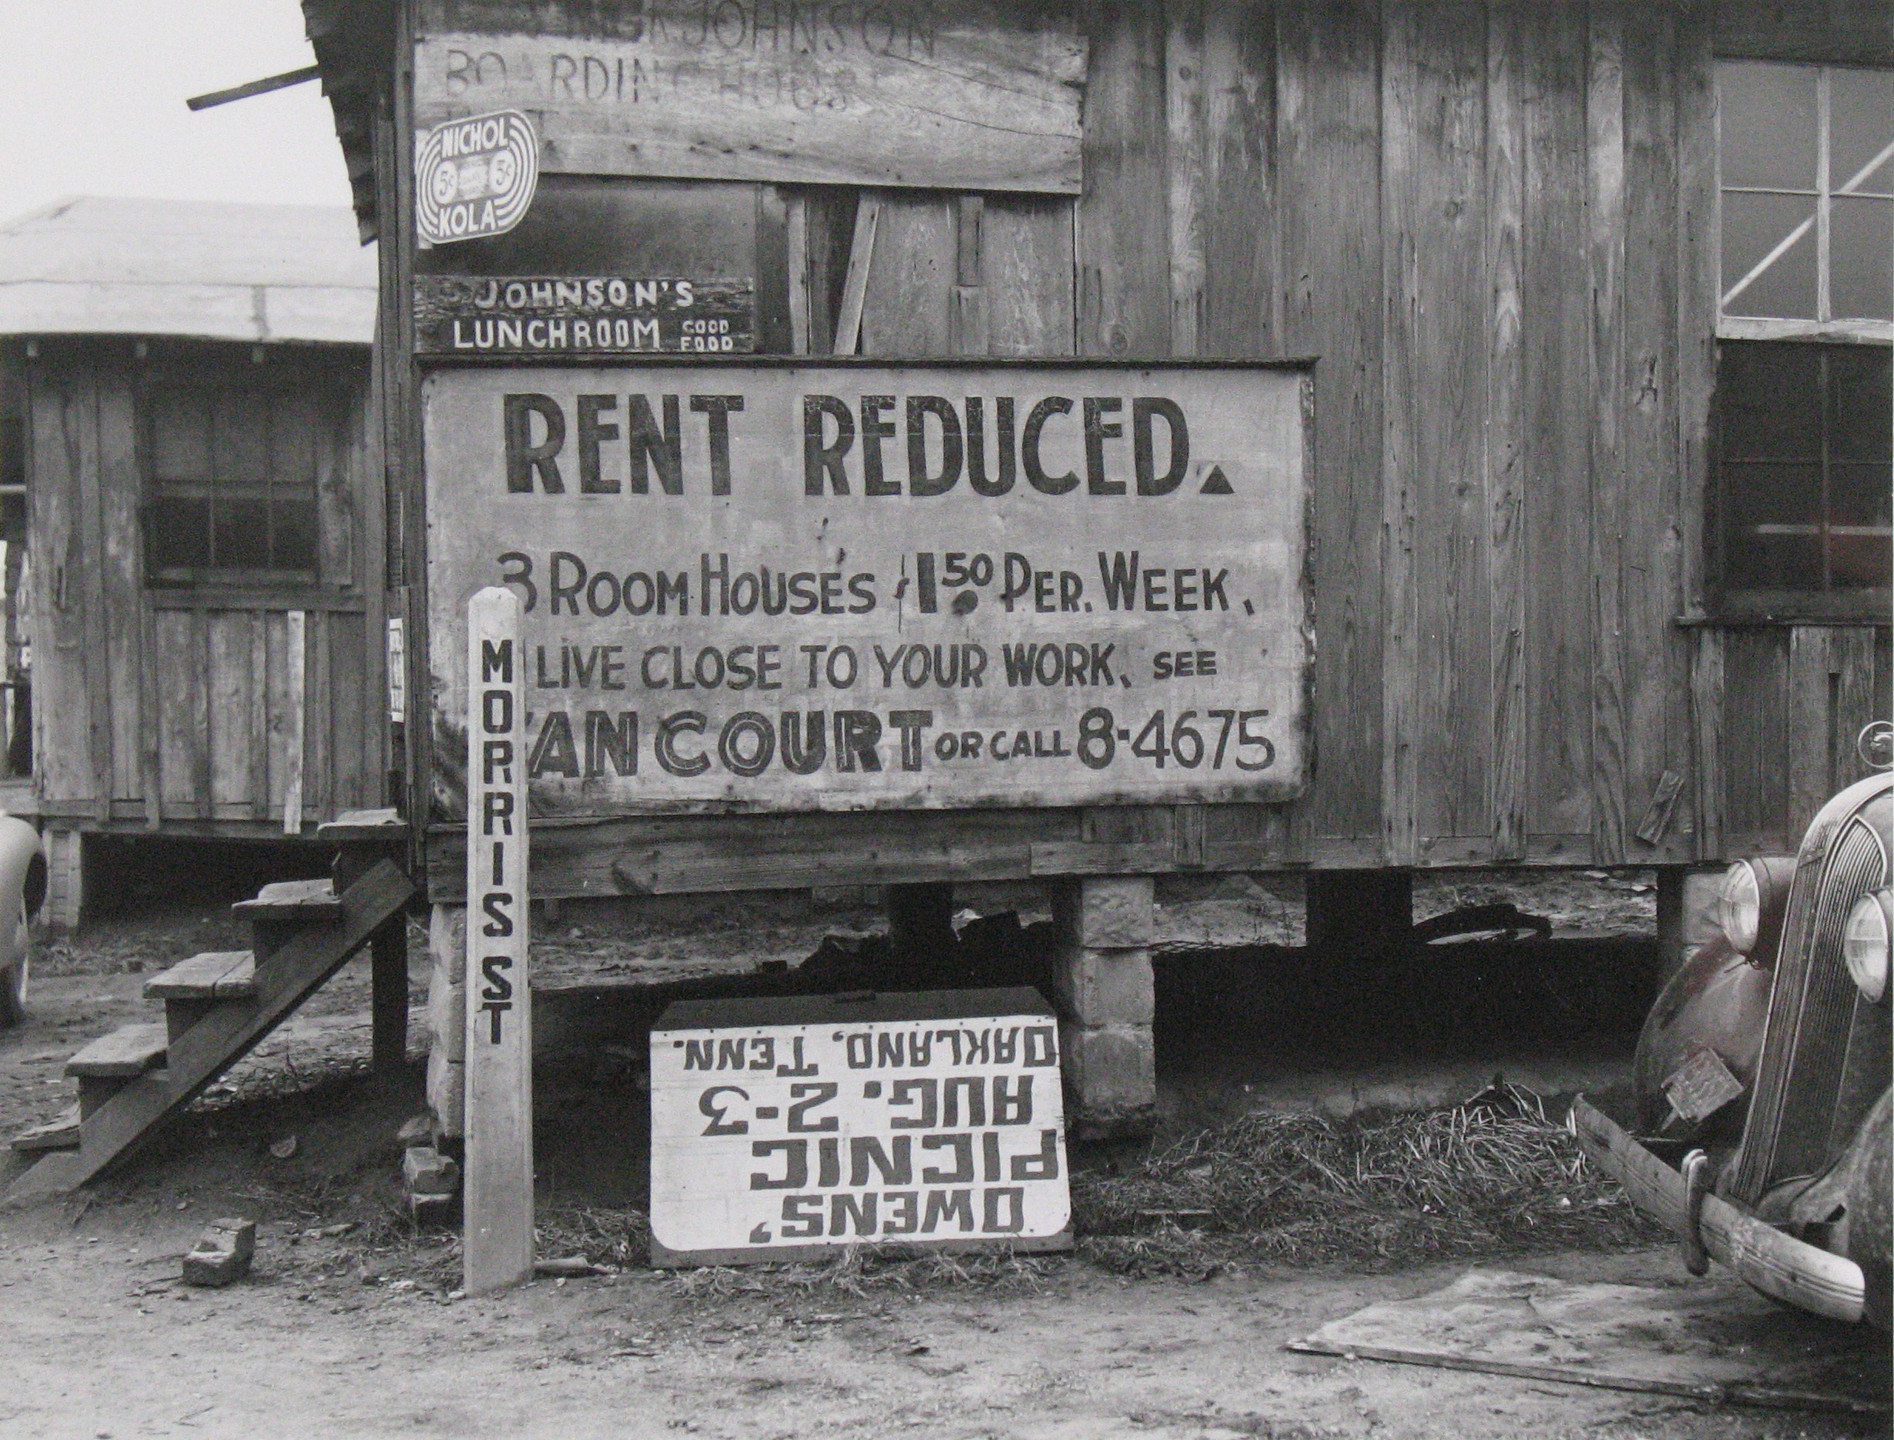 JOHNSON
BOARDING HOUSE
NICHOL
5¢ 5¢
KOLA
JOHNSON'S
LUNCHROOM GOOD
FOOD
RENT REDUCED.
3 ROOM HOUSES $1.50 PER. WEEK,
LIVE CLOSE TO YOUR WORK, SEE
AN COURT OR CALL 8-4675
MORRIS ST
OWENS'
PICNIC
AUG. 2-3
OAKLAND, TENN.